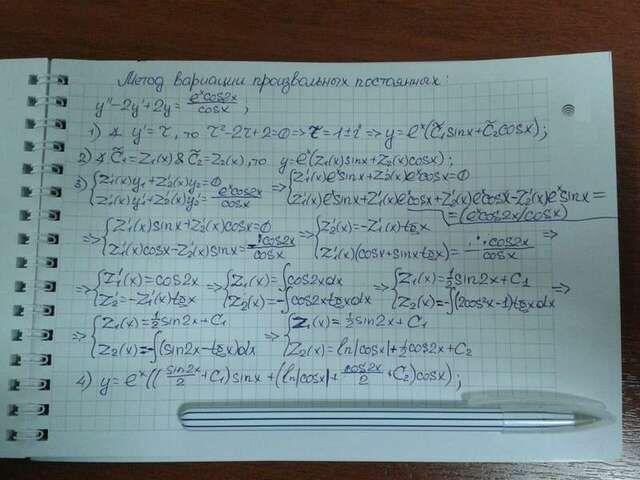 Метод вариации произвольных постоянных:
y''-2y'+2y=e^x cos2x/cosx;
1) ∢ y'=τ, то τ²-2τ+2=0 => τ=1±i => y=e^x(C̃₁sinx+C̃₂cosx);
2) ∢ C̃₁=Z₁(x) & C̃₂=Z₂(x), то y=e^x(Z₁(x)sinx+Z₂(x)cosx);
3) {Z₁'(x)y₁+Z₂'(x)y₂=0 => {Z₁'(x)e^x sinx+Z₂'(x)e^x cosx=0
{Z₁'(x)y₁'+Z₂'(x)y₂'=e^x cos2x/cosx {Z₁'(x)e^x sinx+Z₁'(x)e^x cosx+Z₂'(x)e^x cosx-Z₂'(x)e^x sinx=
=(e^x cos2x/cosx)
=> {Z₁'(x)sinx+Z₂'(x)cosx=0 => {Z₂'(x)=-Z₁'(x)tgx =>
{Z₁'(x)cosx-Z₂'(x)sinx=cos2x/cosx {Z₁'(x)(cosx+sinx tgx)=cos2x/cosx
=> {Z₁'(x)=cos2x => {Z₁(x)=∫cos2xdx => {Z₁(x)=½sin2x+C₁ =>
{Z₂'=-Z₁'(x)tgx {Z₂(x)=-∫cos2x tgxdx {Z₂(x)=-∫(2cos²x-1)tgxdx
=> {Z₁(x)=½sin2x+C₁ => {Z₁(x)=½sin2x+C₁
{Z₂(x)=-∫(sin2x-tgx)dx {Z₂(x)=ln|cosx|+½cos2x+C₂
4) y=e^x((sin2x/2+C₁)sinx+(ln|cosx|+cos2x/2+C₂)cosx);